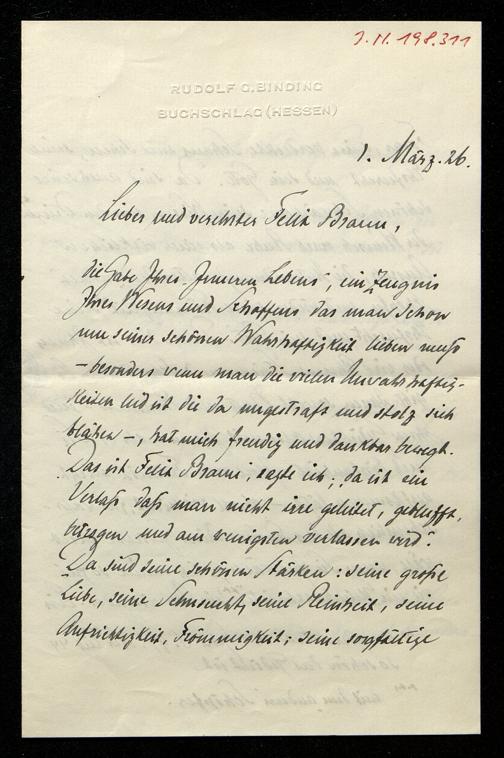 J.N. 198.311
RUDOLF G. BINDING
BUCHSCHLAG (HESSEN)
1. März. 26.
Lieber und verehrter Felix Braun,
die Gabe Ihres „Inneren Lebens", ein Zeugnis
Ihres Wesens und Schaffens das man schon
um seiner schönen Wahrhaftigkeit lieben muss
– besonders wenn man die vielen Unwahrhaftig-
keiten leid ist die da ungestraft und stolz sich
blähen –, hat mich freudig und dankbar bewegt.
„Das ist Felix Braun, sagte ich; da ist ein
Verlass dass man nicht irre geleitet, geblufft,
betrogen und am wenigsten verlassen wird".
„Da sind seine schönen Stärken: seine große
Liebe, seine Sehnsucht, seine Reinheit, seine
Aufrichtigkeit, Frömmigkeit; seine sorgfältige